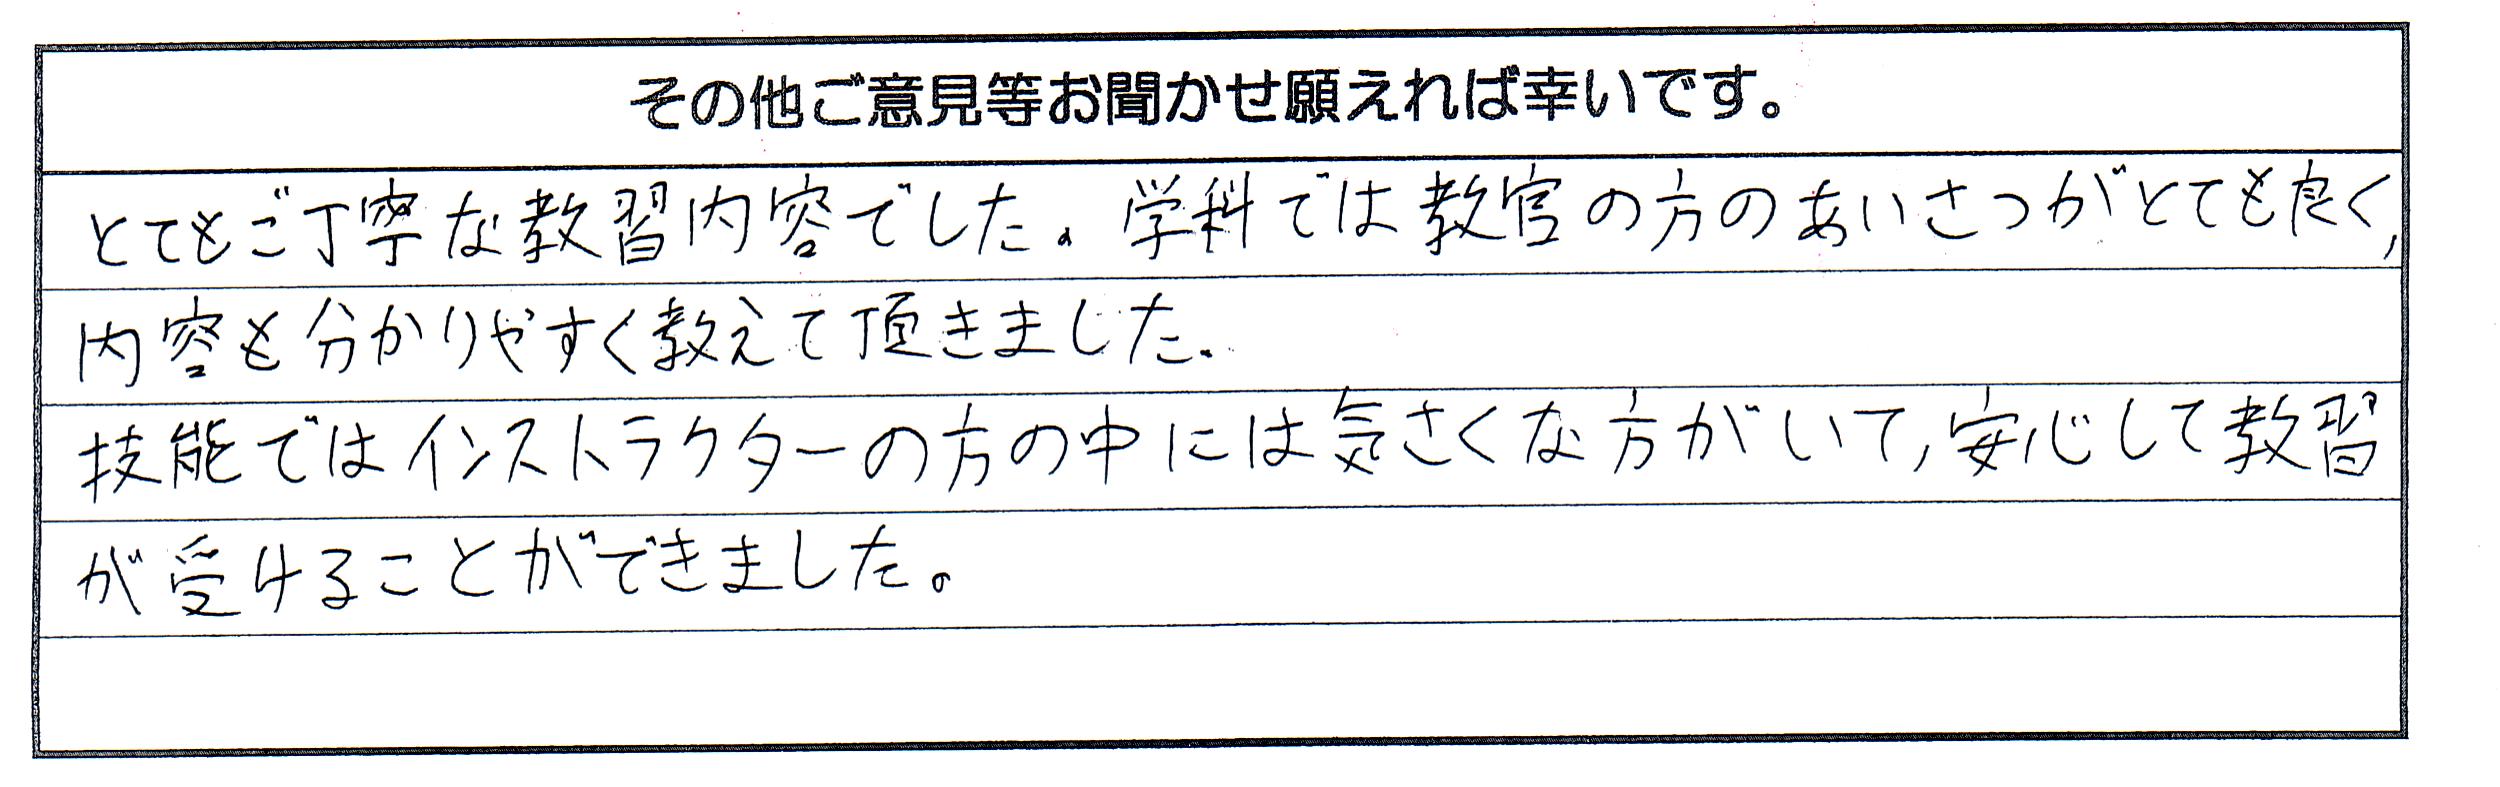 その他ご意見等お聞かせ願えれば幸いです。
とてもご丁寧な教習内容でした。学科では教官の方のあいさつがとても良く,
内容も分かりやすく教えて頂きました。
技能ではインストラクターの方の中には気さくな方がいて,安心して教習
が受けることができました。